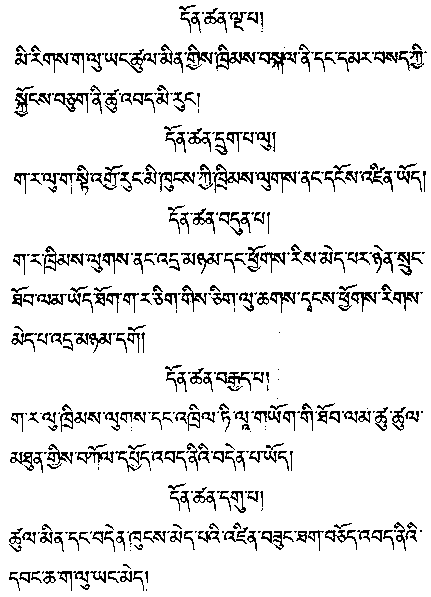 དོན་ཚན་ལྔ་པ།
མི་རིགས་ག་ལུ་ཡང་ཚུལ་མིན་གྱིས་ཁྲིམས་བསྐལ་ནི་དང་དམར་བསད་ཀྱི་
སྐྱོངས་བཅུག་ནི་ཚུ་འབད་མི་རུང།
དོན་ཚན་དྲུག་པ་ལུ།
ག་ར་ལུ་ག་སྟི་འགྱོ་རུང་མི་ཁུངས་ཀྱི་ཁྲིམས་ལུགས་ནང་དངོས་འཛིན་ཡོད།
དོན་ཚན་བདུན་པ།
ག་ར་ཁྲིམས་ལུགས་ནང་འདྲ་མཉམ་དང་ཕྱོགས་རིས་མེད་པར་ཉེན་སྲུང་
ཐོབ་ལམ་ཡོད་ཐོག་ག་ར་ཅིག་གིས་ཅིག་ལུ་ཆགས་དྭངས་ཕྱོགས་རིགས་
མེད་པ་འདྲ་མཉམ་དགོ།
དོན་ཚན་བརྒྱད་པ།
ག་ར་ལུ་ཁྲིམས་ལུགས་དང་འཁྲིལ་ཏི་ལཱ་གཡོག་གི་ཐོབ་ལམ་ཚུ་ཚུལ་
མཐུན་གྱིས་བཀོལ་དཔྱོད་འབད་ནིའི་བདེན་པ་ཡོད།
དོན་ཚན་དགུ་པ།
ཚུལ་མིན་དང་བདེན་ཁུངས་མེད་པའི་འཛིན་བཟུང་ཐག་བཅོད་འབད་ནིའི་
དབང་ཆ་ག་ལུ་ཡང་མེད།